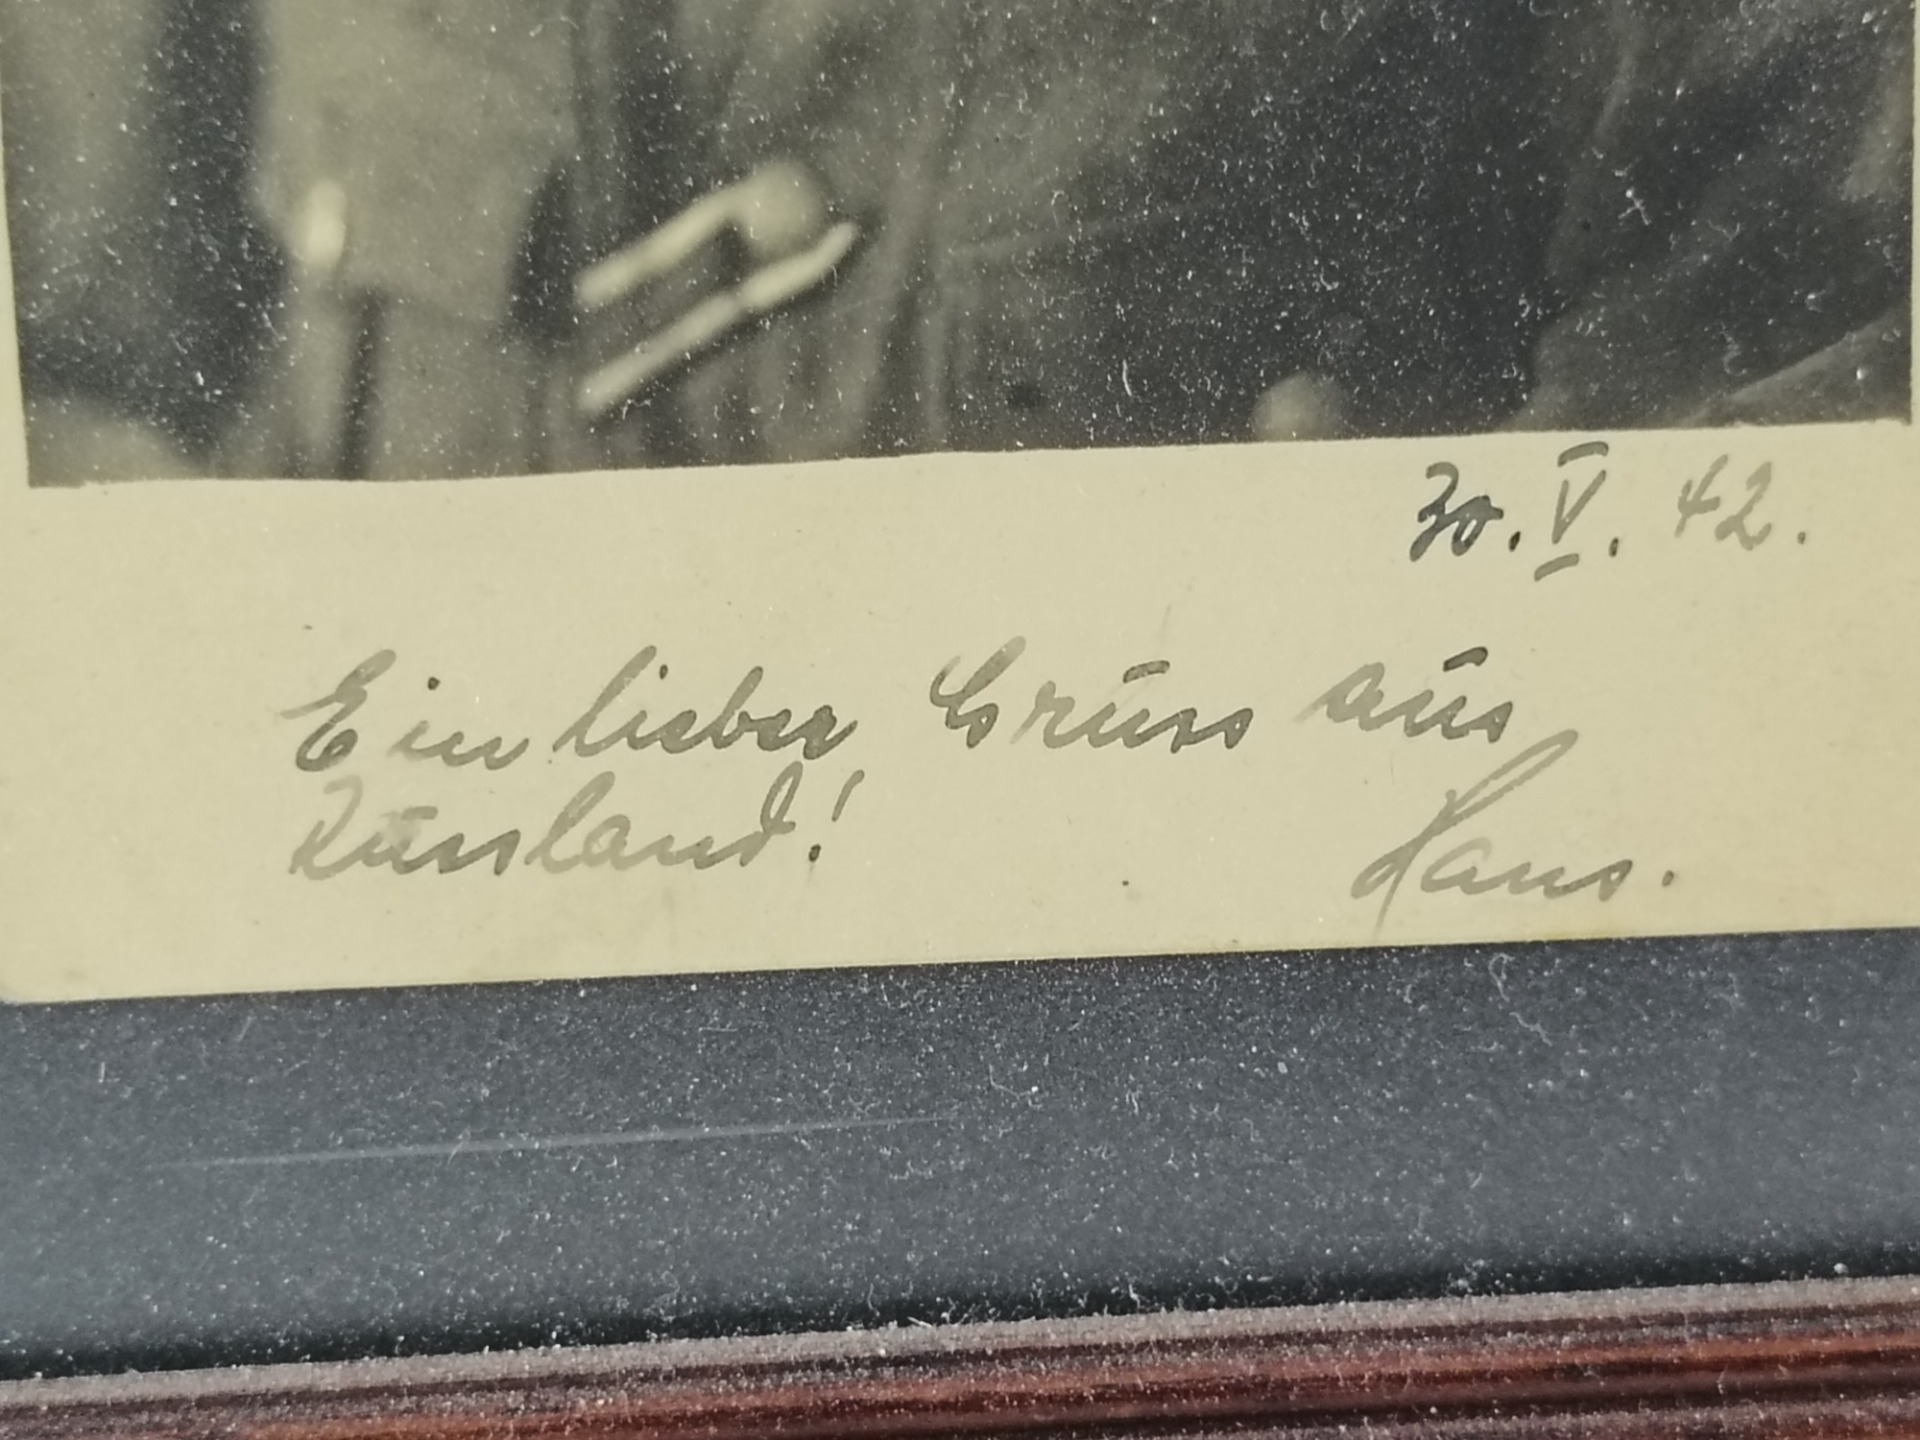 30. V. 42.
Ein lieber Gruss aus
Russland!
Hans.